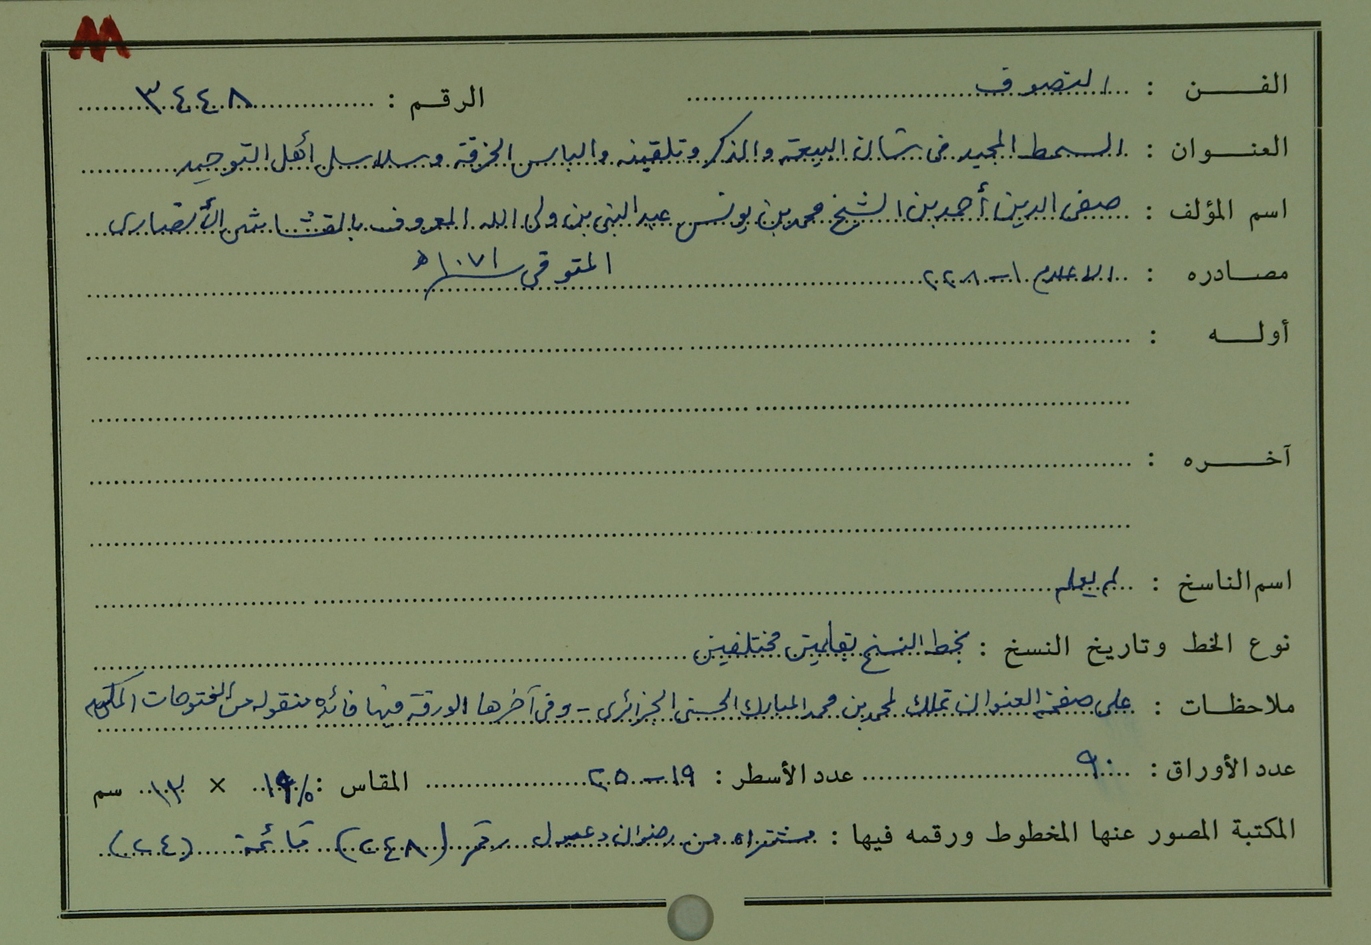 الفـن : التصوف الرقم : ٣٤٤٨
العنوان : السمط المجيد في شان البيعة والذكر وتلقينه والباس الخرقة وسلاسل أهل التوحيد
اسم المؤلف : صفي الدين أحمد بن الشيخ محمد بن يونس عبد النبي بن ولي الله المعروف بالقشاشي الأنصاري
المتوفى ١٠٧١ هـ
مصادره : الاعلام ١ - ٢٢٨
أوله :
آخره :
اسم الناسخ : لم يعلم
نوع الخط وتاريخ النسخ : بخط النسخ بقلمين مختلفين
ملاحظات : على صفحة العنوان تملك لمحمد بن محمد المبارك الحسني الجزائري - وفي آخرها الورقة فيها فائدة منقولة من الفتوحات المكية
عدد الأوراق : ٩٠ عدد الأسطر : ١٩ - ٢٥ المقاس : ١٩ × ١٣ سم
المكتبة المصور عنها المخطوط ورقمه فيها : مشتراه من رضوان دعبول رقم (٢٤٨) قائمة (٢٤)